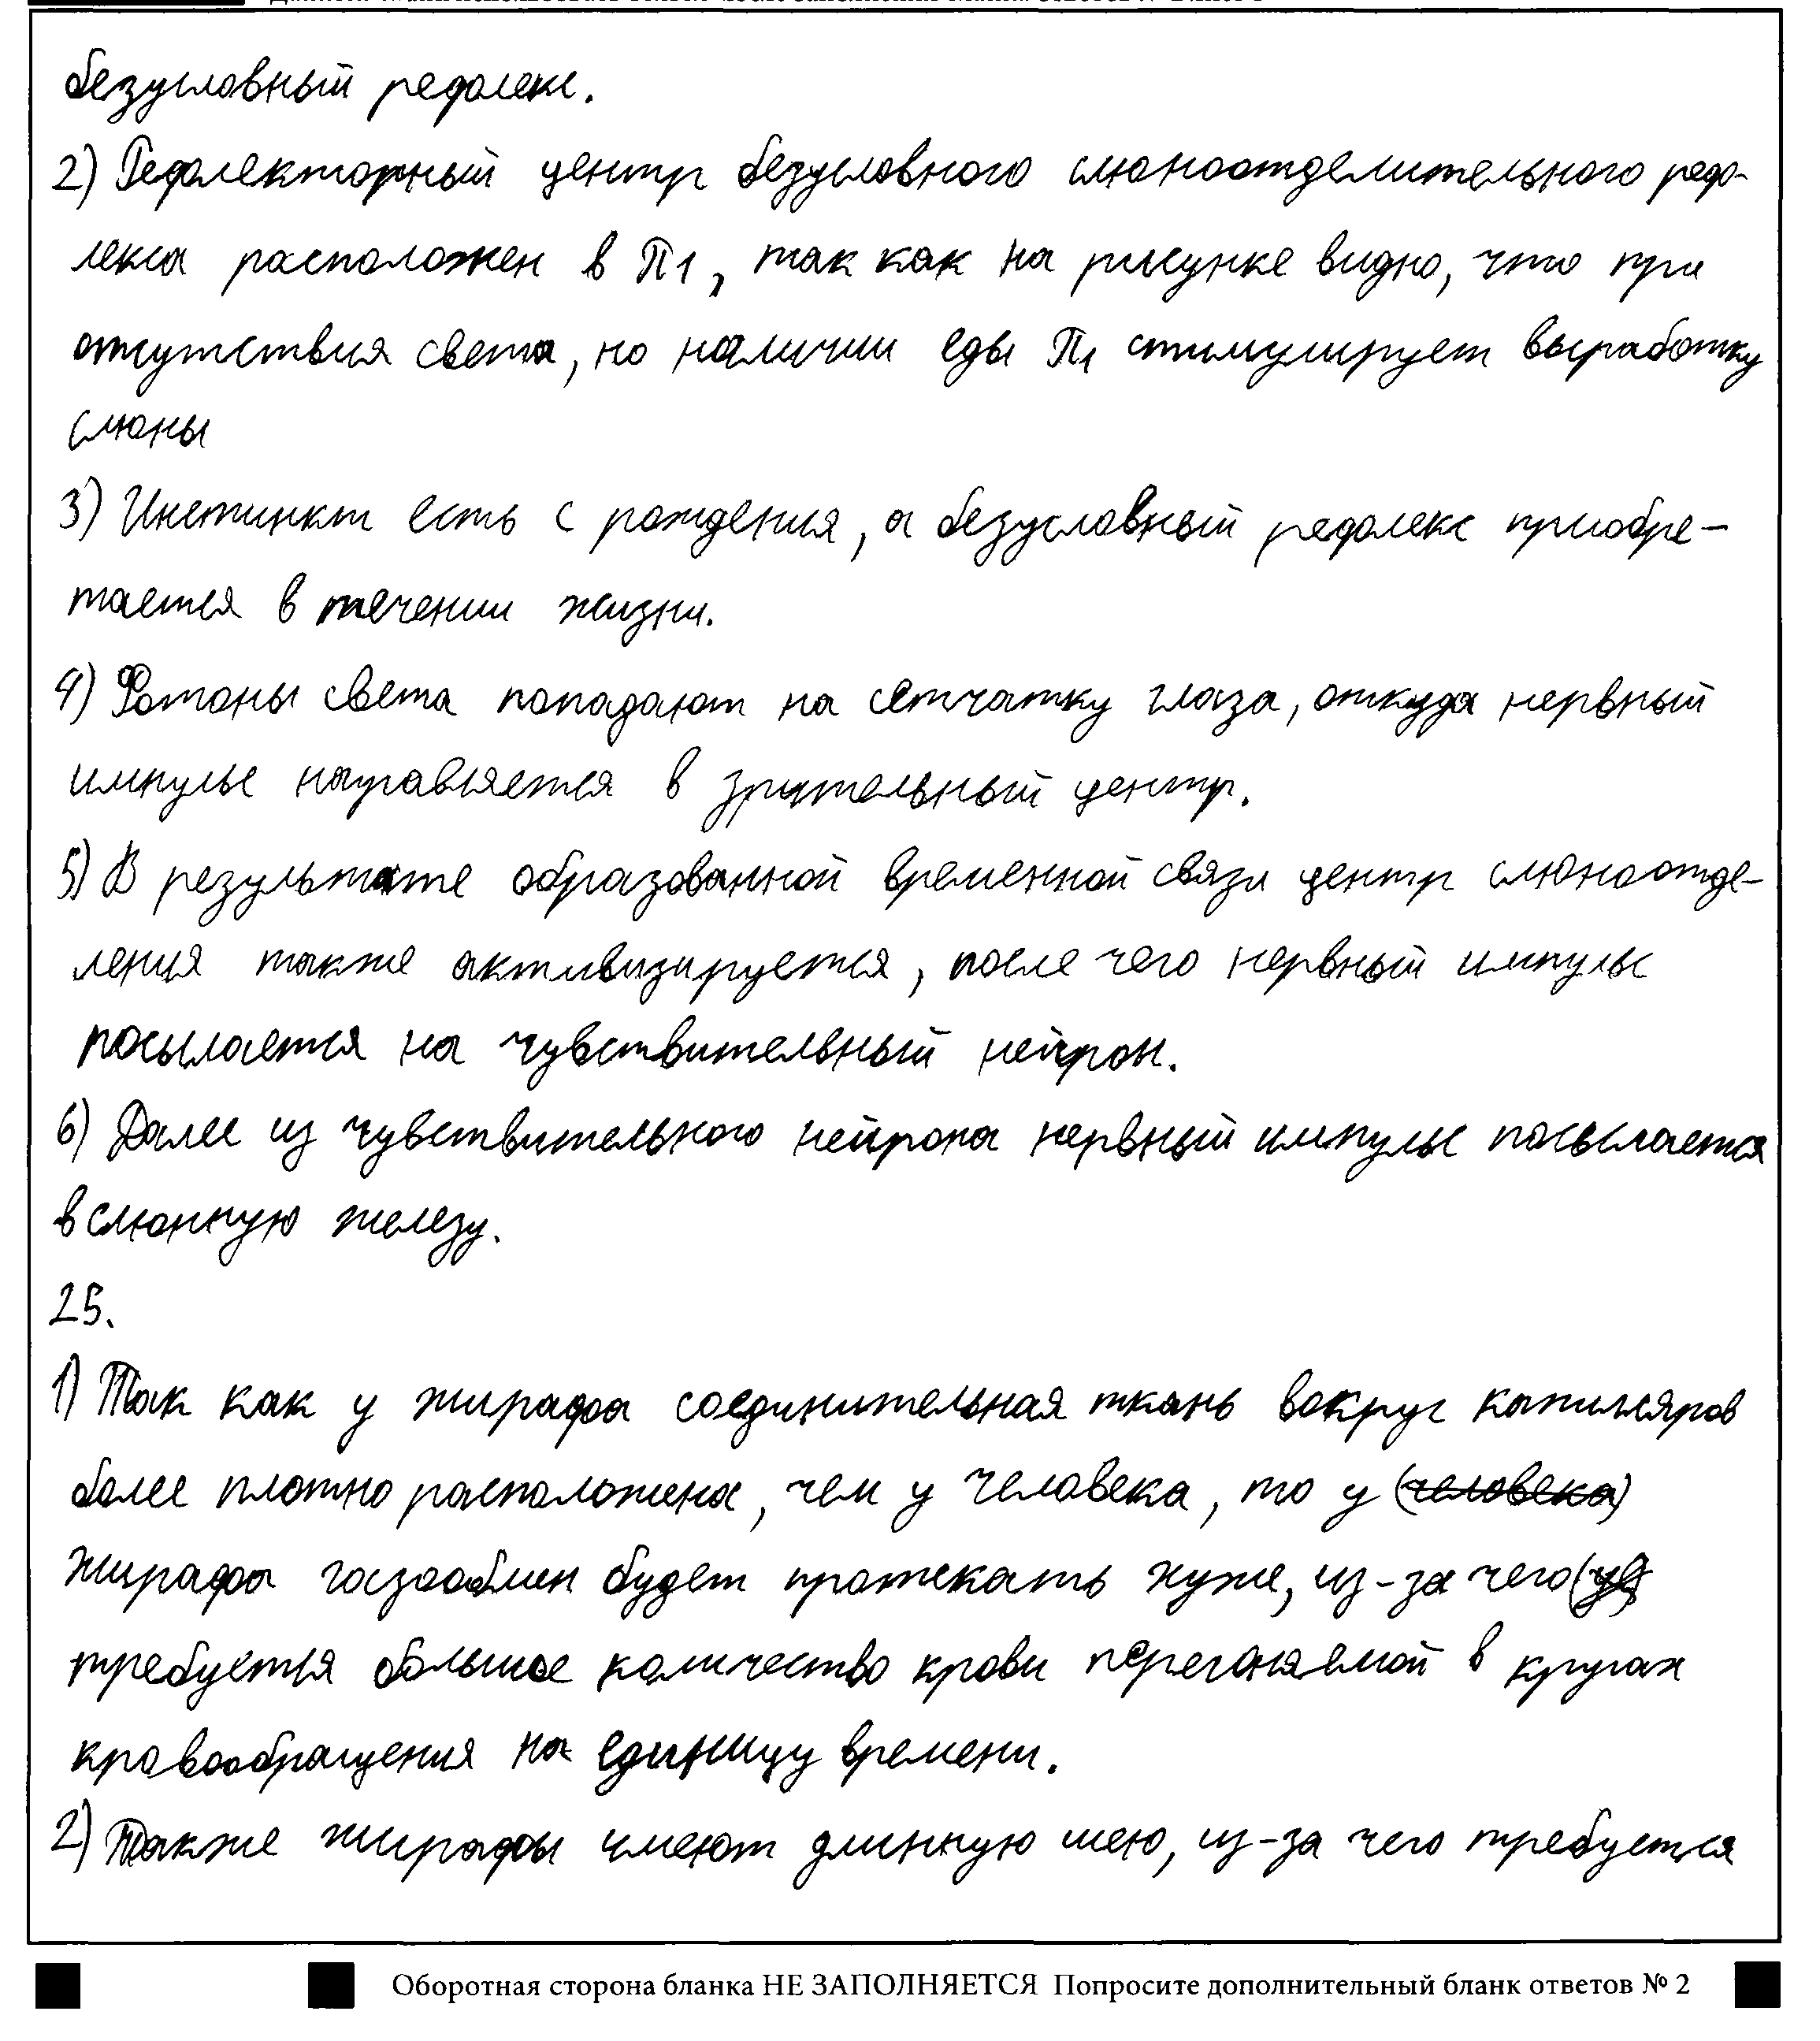 безусловный рефлекс.
2) Рефлекторный центр безусловного слюноотделительного реф-
лекса расположен в П1, так как на рисунке видно, что при
отсутствия света, но наличии еды П1 стимулирует выработку
слюны
3) Инстинкт есть с рождения, а безусловный рефлекс приобре-
тается в течении жизни.
4) Фотоны света попадают на сетчатку глаза, откуда нервный
импульс направляется в зрительный центр.
5) В результате образованной временной связи центр слюноотде-
ления также активизируется, после чего нервный импульс
посылается на чувствительный нейрон.
6) Далее из чувствительного нейрона нервный импульс посылается
в слюнную железу.
25.
1) Так как у жирафа соединительная ткань вокруг капилляров
более плотно расположена, чем у человека, то у (человека)
жирафа газообмен будет протекать хуже, из-за чего
требуется большее количество крови перегоняемой в кругах
кровообращения на единицу времени.
2) Также жирафы имеют длинную шею, из-за чего требуется
Оборотная сторона бланка НЕ ЗАПОЛНЯЕТСЯ Попросите дополнительный бланк ответов № 2